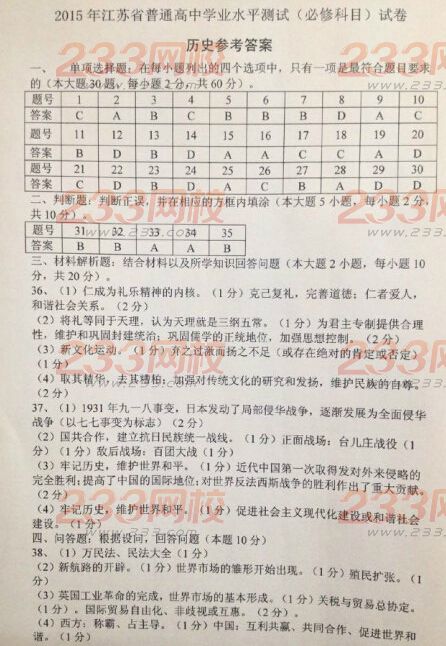 2015年江苏省普通高中学业水平测试（必修科目）试卷
历史参考答案
一、 单项选择题：在每小题列出的四个选项中，只有一项是最符合题目要求
的（本大题30题，每小题2分，共60分）。
题号 1 2 3 4 5 6 7 8 9 10
答案 C A B C B B B D A C
题号 11 12 13 14 15 16 17 18 19 20
答案 B D B D A A C C A D
题号 21 22 23 24 25 26 27 28 29 30
答案 C D B D A C B A D D
二、判断题：判断正误，并在相应的方框内填涂（本大题5小题，每小题2分，
共10分）。
题号 31 32 33 34 35
答案 B B A A B
三、材料解析题：结合材料以及所学知识回答问题（本大题2小题，每小题10
分，共20分）。
36、（1）仁成为礼乐精神的内核。（1分）克己复礼，完善道德；仁者爱人，
和谐社会关系。（2分）
（2）将礼等同于天理，认为天理就是三纲五常。（1分）为君主专制提供合理
性，维护和巩固封建统治；巩固儒学的正统地位，加强思想控制。（2分）
（3）新文化运动。（1分）弃之过激而扬之不足（或存在绝对的肯定或否定）
（1分）
（4）取其精华，去其糟粕；加强对传统文化的研究和发扬，维护民族的自尊。
（2分）
37、（1）1931年九一八事变，日本发动了局部侵华战争，逐渐发展为全面侵华
战争（以七七事变为标志）（2分）
（2）国共合作，建立抗日民族统一战线。（1分）正面战场：台儿庄战役（1
分）敌后战场：百团大战（1分）
（3）牢记历史，维护世界和平。（1分）近代中国第一次取得发对外来侵略的
完全胜利；提高了中国的国际地位；对世界反法西斯战争的胜利作出了重大贡献。
（2分）
（4）牢记历史，维护世界和平。（1分）促进社会主义现代化建设或和谐社会
建设。（1分）
四、问答题：根据设问，回答问题（本题10分）
38、（1）万民法、民法大全（1分）
（2）新航路的开辟。（1分）世界市场的雏形开始出现。（1分）殖民扩张。（1
分）
（3）英国工业革命的完成，世界市场的基本形成。（1分）关税与贸易总协定。
（1分）。国际贸易自由化、非歧视或互惠。（2分）
（4）西方：称霸、占主导。（1分）中国：互利共赢、共同合作、促进世界和
谐。（1分）
233网校
www.233.com